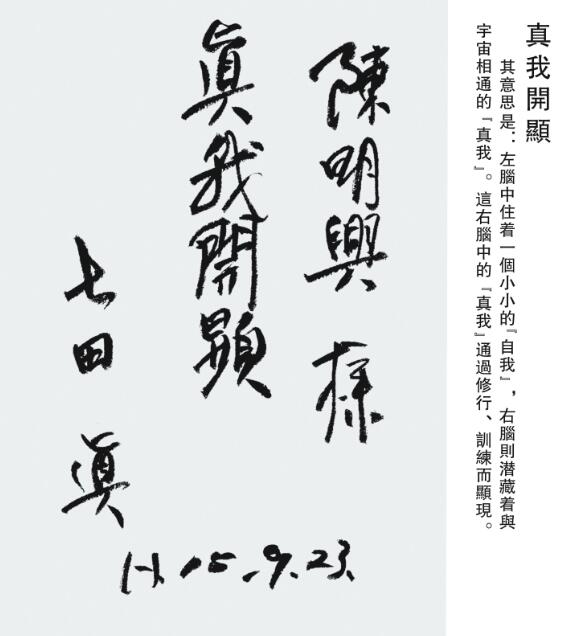 真我開顯
其意思是：左腦中住着一個小小的『自我』，右腦則潜藏着與
宇宙相通的『真我』。這右腦中的『真我』通過修行、訓練而顯現。
陳明興 様
眞我開顕
七田 眞
H.15.9.23.